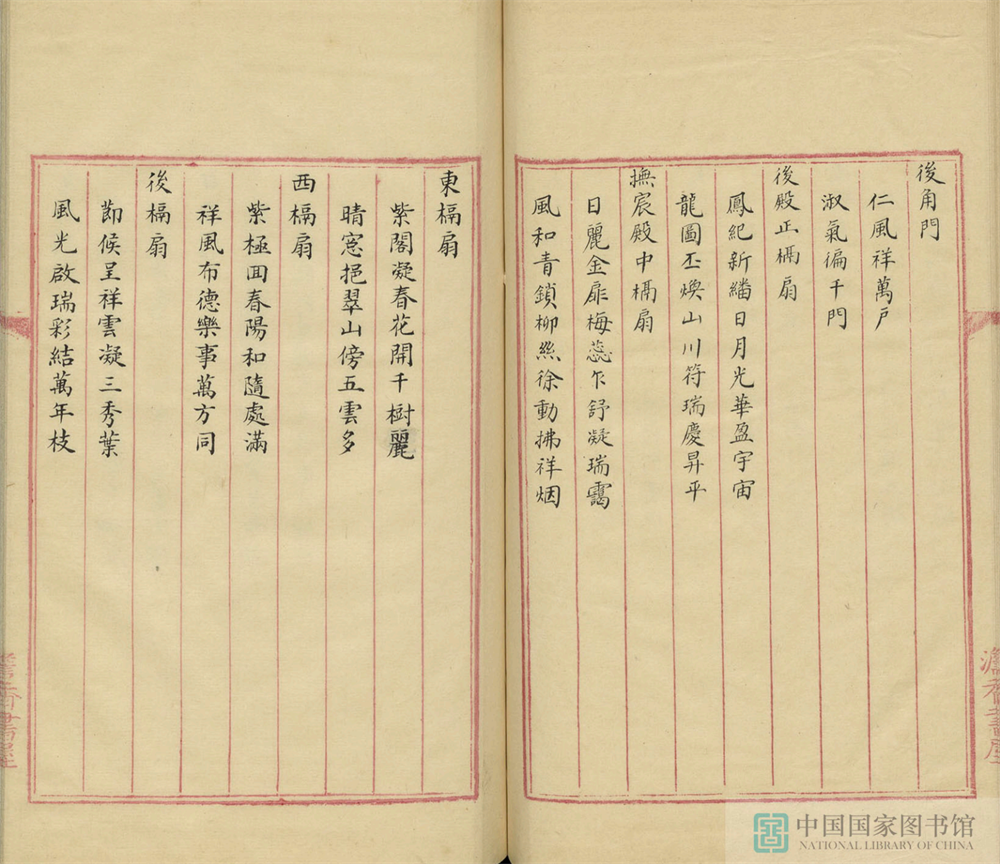 後角門
仁風祥萬戶
淑氣徧千門
後殿正槅扇
鳳紀新繙日月光華盈宇宙
龍圖丕煥山川符瑞慶昇平
撫宸殿中槅扇
日麗金扉梅蕊乍舒凝瑞靄
風和青鎖柳絲徐動拂祥烟
東槅扇
紫閣凝春花開千樹麗
晴窓挹翠山傍五雲多
西槅扇
紫極回春陽和隨處滿
祥風布德樂事萬方同
後槅扇
節候呈祥雲凝三秀葉
風光啟瑞彩結萬年枝
中国国家图书馆
NATIONAL LIBRARY OF CHINA